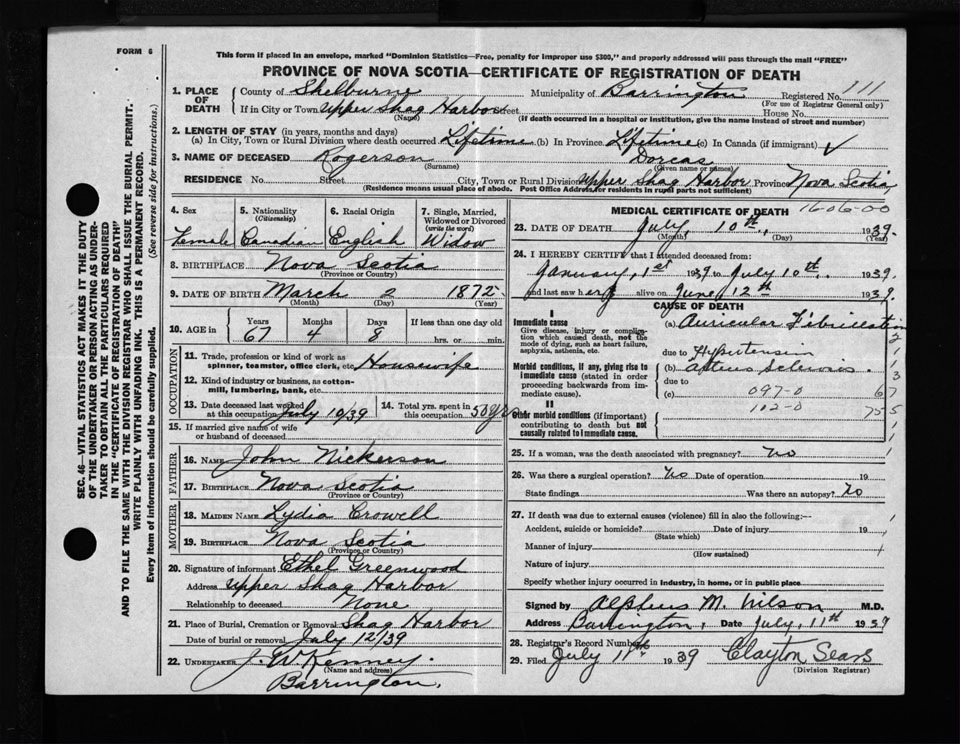 FORM 6
This form if placed in an envelope, marked "Dominion Statistics—Free, penalty for improper use $300," and properly addressed will pass through the mail "FREE"
PROVINCE OF NOVA SCOTIA—CERTIFICATE OF REGISTRATION OF DEATH
SEC. 46—VITAL STATISTICS ACT MAKES IT THE DUTY
OF THE UNDERTAKER OR PERSON ACTING AS UNDER-
TAKER TO OBTAIN ALL THE PARTICULARS REQUIRED
IN THE "CERTIFICATE OF REGISTRATION OF DEATH"
AND TO FILE THE SAME WITH THE DIVISION REGISTRAR WHO SHALL ISSUE THE BURIAL PERMIT.
WRITE PLAINLY WITH UNFADING INK. THIS IS A PERMANENT RECORD.
Every item of information should be carefully supplied. (See reverse side for instructions.)
1. PLACE OF DEATH
County of Shelburne Municipality of Barrington Registered No. 111
(For use of Registrar General only)
If in City or Town Upper Shag Harbor Street House No.
(Name) (If death occurred in a hospital or institution, give the name instead of street and number)
2. LENGTH OF STAY (in years, months and days)
(a) In City, Town or Rural Division where death occurred Lifetime (b) In Province Lifetime (c) In Canada (if immigrant) ✓
3. NAME OF DECEASED Rogerson Dorcas
(Surname) (Given name or names)
RESIDENCE No. Street City, Town or Rural Division Upper Shag Harbor Province Nova Scotia
(Residence means usual place of abode. Post Office Address for residents in rural parts not sufficient)
4. Sex 5. Nationality (Citizenship) 6. Racial Origin 7. Single, Married, Widowed or Divorced (write the word)
Female Canadian English Widow
8. BIRTHPLACE Nova Scotia
(Province or Country)
9. DATE OF BIRTH March 2 1872
(Month) (Day) (Year)
10. AGE in Years Months Days If less than one day old
67 4 8 hrs. or min.
OCCUPATION
11. Trade, profession or kind of work as spinner, teamster, office clerk, etc. Housewife
12. Kind of industry or business, as cotton-mill, lumbering, bank, etc.
13. Date deceased last worked at this occupation July 10/39 14. Total yrs. spent in this occupation 50 yrs
15. If married give name of wife or husband of deceased
FATHER
16. NAME John Nickerson
17. BIRTHPLACE Nova Scotia
(Province or Country)
MOTHER
18. MAIDEN NAME Lydia Crowell
19. BIRTHPLACE Nova Scotia
(Province or Country)
20. Signature of informant Ethel Greenwood
Address Upper Shag Harbor
Relationship to deceased None
21. Place of Burial, Cremation or Removal Shag Harbor
Date of burial or removal July 12/39
22. UNDERTAKER J. W Kenney.
(Name and address)
Barrington.
MEDICAL CERTIFICATE OF DEATH
23. DATE OF DEATH July, 10th, 1939.
(Month) (Day) (Year)
24. I HEREBY CERTIFY that I attended deceased from:
January, 1st 1939 to July 10th. 1939.
and last saw her alive on June 12th 1939.
CAUSE OF DEATH
I
Immediate cause
Give disease, injury or complication which caused death, not the mode of dying, such as heart failure, asphyxia, asthenia, etc.
(a) Auricular Fibrillation
due to Hypertension
Morbid conditions, if any, giving rise to immediate cause (stated in order proceeding backwards from immediate cause).
(b) Arterio Sclerosis.
due to
(c) 097-0
102-0
II
Other morbid conditions (if important) contributing to death but not causally related to immediate cause.
25. If a woman, was the death associated with pregnancy? No
26. Was there a surgical operation? No Date of operation 19
State findings Was there an autopsy? No
27. If death was due to external causes (violence) fill in also the following:—
Accident, suicide or homicide? Date of injury 19
(State which)
Manner of injury
(How sustained)
Nature of injury
Specify whether injury occurred in industry, in home, or in public place
Signed by Alpheus M. Wilson M.D.
Address Barrington, Date July, 11th 1939
28. Registrar's Record Number
29. Filed July 11th 1939 Clayton Sears
(Division Registrar)